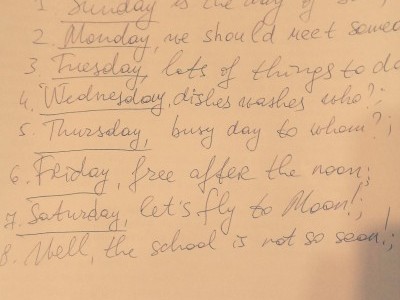 1. Sunday is the way of
2. Monday, we should meet
3. Tuesday, lots of things to do
4. Wednesday, dishes washes who?;
5. Thursday, busy day to whom?;
6. Friday, free after the noon;
7. Saturday, let's fly to Moon!;
8. Well, the school is not so soon!;